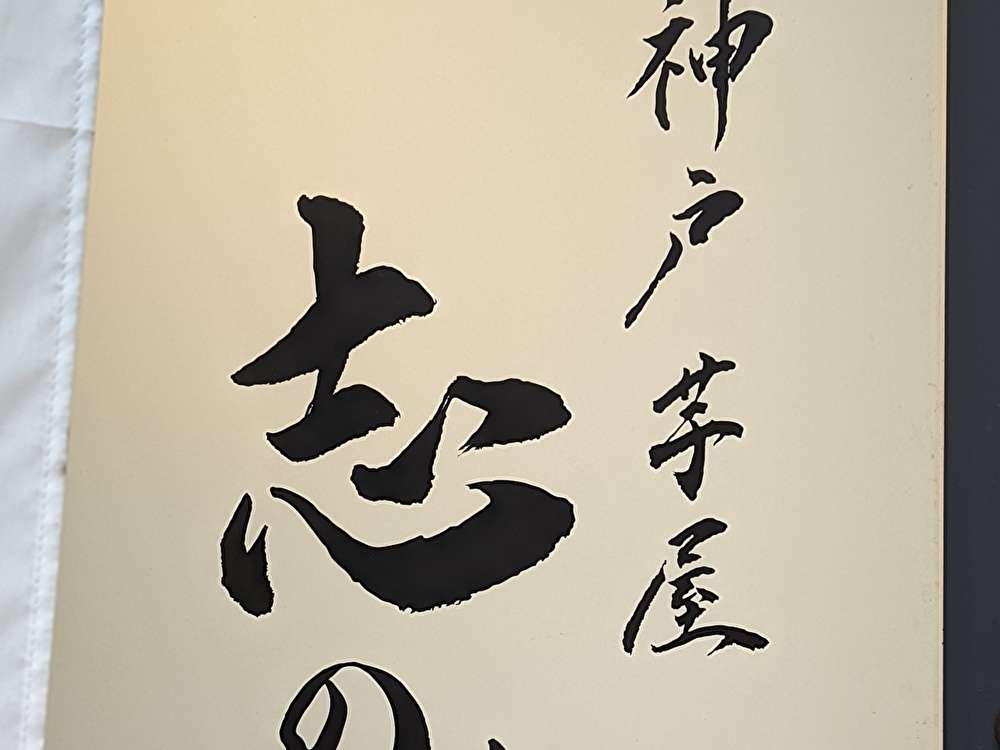 神戸芋屋
志の